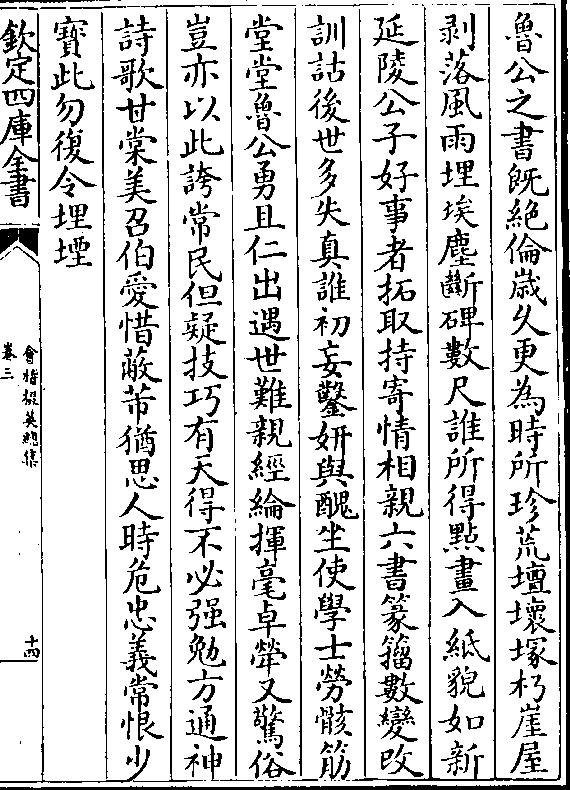 魯公之書旣絶倫歳久更為時所珍荒壇壞塚朽崖屋
剥落風雨埋埃塵斷碑數尺誰所得點畫入紙貌如新
延陵公子好事者拓取持寄情相親六書篆籀數變改
訓詁後世多失真誰初妄鑿妍與醜坐使學士勞骸筋
堂堂魯公勇且仁出遇世難親經綸揮毫卓犖又驚俗
豈亦以此誇常民但疑技巧有天得不必强勉方通神
詩歌甘棠美召伯愛惜蔽芾猶思人時危忠義常恨少
寳此勿復令埋堙
欽定四庫全書
會稽掇英總集
卷三
十四